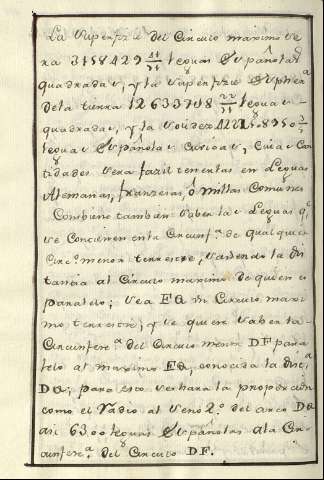 La superfizie del Circulo maximo se
ra 3158429 11/21 leguas Españolas
quadradas, y la superfizie Espherª
de la tierra 12633718 22/21 leguas
quadradas, y la solidez
leguas Españolas cuvicas, cuias can
tidades sera fazil tenerlas en Leguas
Alemanas, franzesas, ô millas Comunes
Combiene tambien saber las Leguas qᵉ
se Contienen en la Circunfª de qualquier
Circº menor terrestre, sabiendo la dis
tancia al Circulo maximo de quien es
paralelo; sea EQ un Circulo maxi
mo, terrestre, y se quiere saber la
Circunferª del Circulo menor DF para
lelo al maximo EQ, conocida la distª
DQ; para esto se hara la proporcion
como el Radio al seno 2º del arco DQ
asi 6300 leguas Españolas a la Cir
cunferª del Circulo DF.